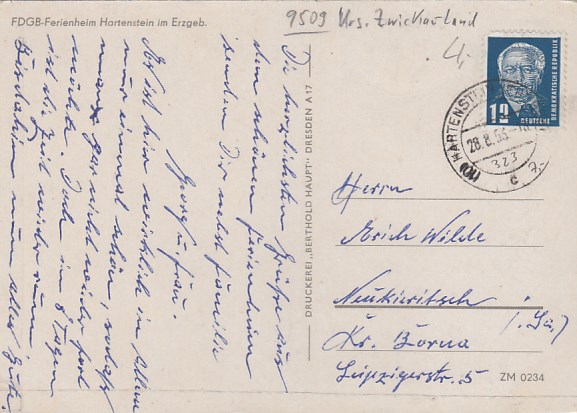 FDGB-Ferienheim Hartenstein im Erzgeb.
9509 Krs. Zwickauland
4,-
12
DEUTSCHE
DEMOKRATISCHE REPUBLIK
(10) HARTENSTEIN
28.8.53
323
c
Die herzlichsten Grüße aus
dem schönen Ferienheim
senden Dir nebst Familie
Georg u. Frau.
Es ist hier wirklich in allem
nur einmal schön, sodaß
man gar nicht wieder fort
möchte. Doch in 8 Tagen
ist die Zeit wieder rum.
Bis dahin nun alles Gute.
DRUCKEREI „BERTHOLD HAUPT" DRESDEN A 17
Herrn
Erich Wilde
Neukieritzsch
(Sa.)
Kr. Borna
Leipzigerstr. 5
ZM 0234